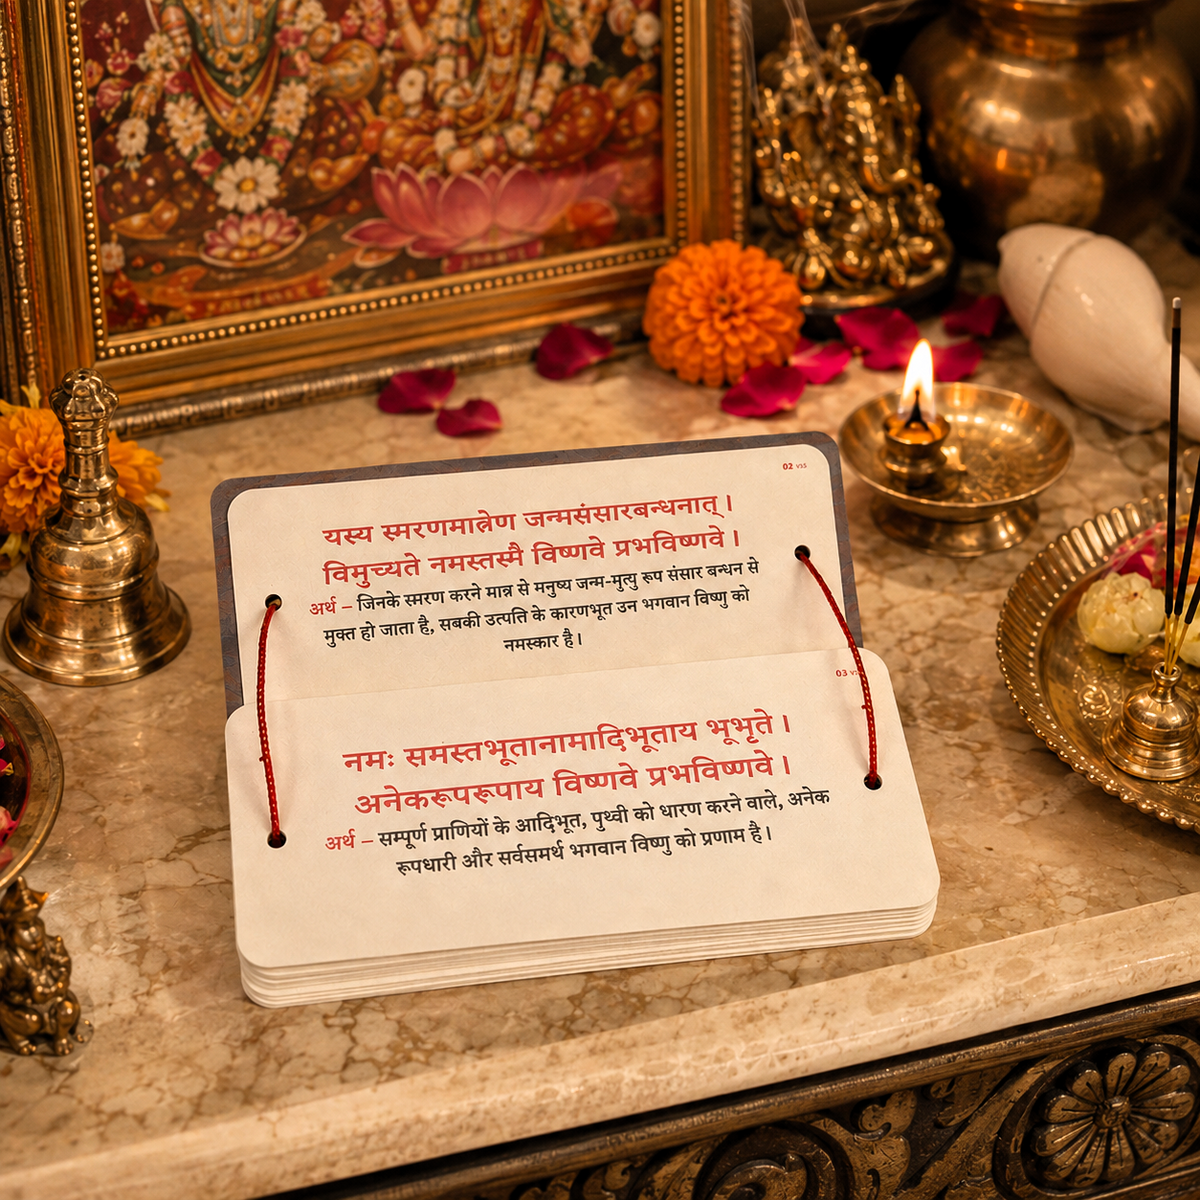 02 VSS
यस्य स्मरणमात्रेण जन्मसंसारबन्धनात् ।
विमुच्यते नमस्तस्मै विष्णवे प्रभविष्णवे ।
अर्थ – जिनके स्मरण करने मात्र से मनुष्य जन्म-मृत्यु रूप संसार बन्धन से
मुक्त हो जाता है, सबकी उत्पति के कारणभूत उन भगवान विष्णु को
नमस्कार है।
03
नमः समस्तभूतानामादिभूताय भूभृते ।
अनेकरूपरूपाय विष्णवे प्रभविष्णवे ।
अर्थ – सम्पूर्ण प्राणियों के आदिभूत, पुथ्वी को धारण करने वाले, अनेक
रूपधारी और सर्वसमर्थ भगवान विष्णु को प्रणाम है।